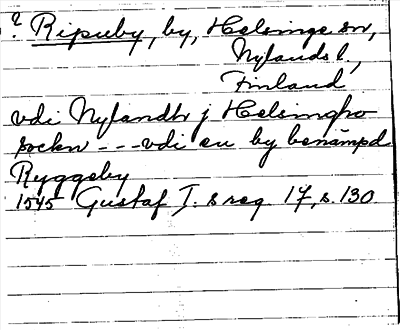 ? Ripuby, by, Helsinge sn,
Nylands l.,
Finland
vdi Nylandh j Helsingho
sockn - - - vdi en by benämpd
Ryggeby
1545 Gustaf I:s reg. 17, s. 130